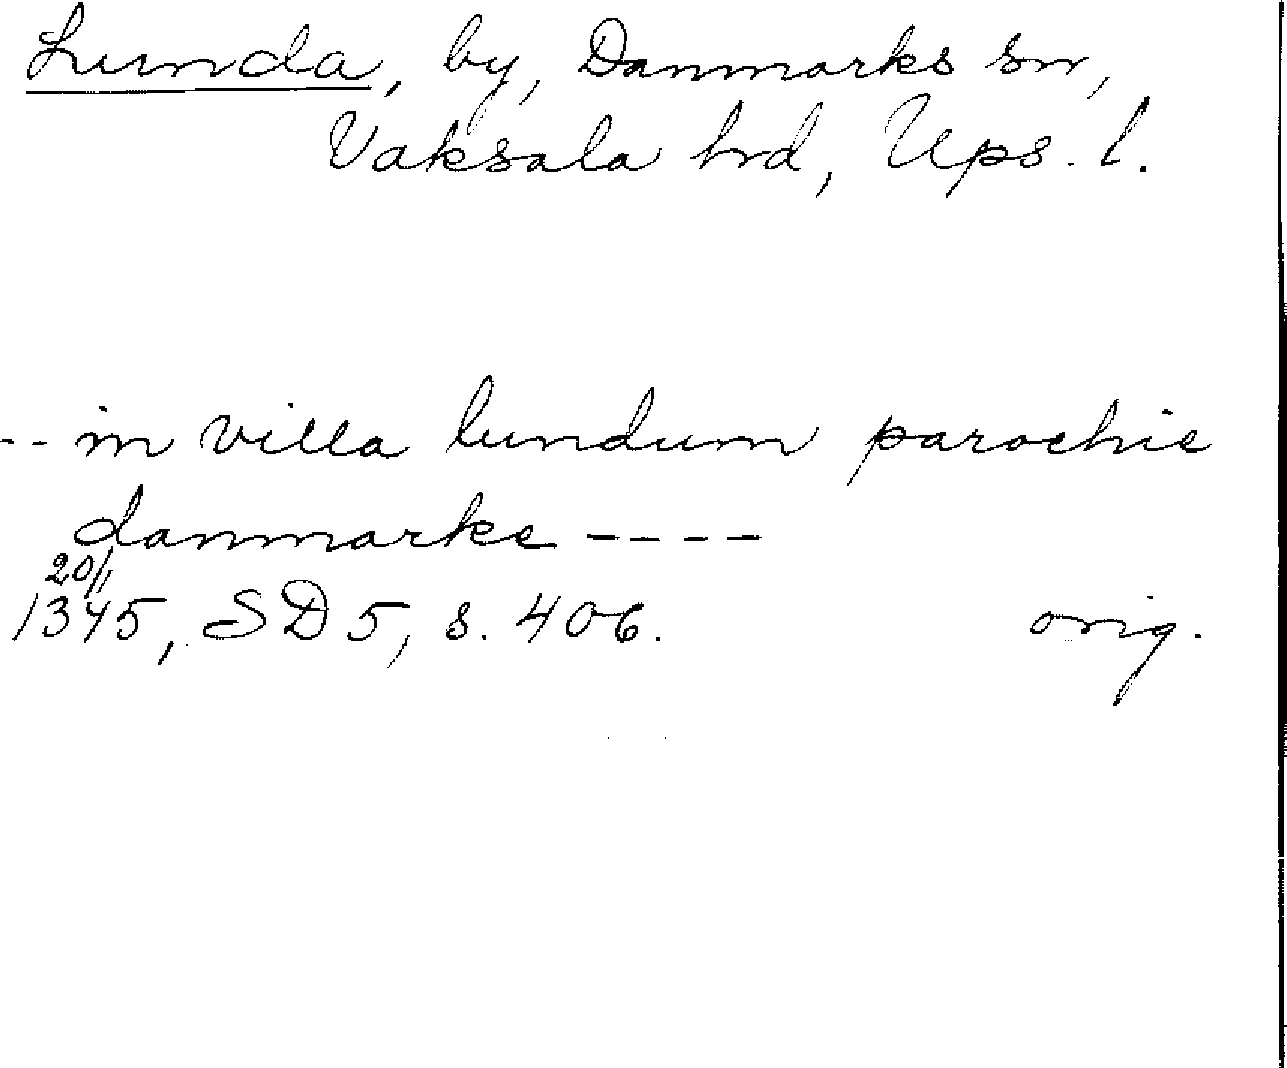 Lunda, by, Danmarks sn,
Vaksala hrd, Ups. l.
-- in villa lundum parochie
danmarke ----
20/1
1345, SD 5, s. 406. orig.